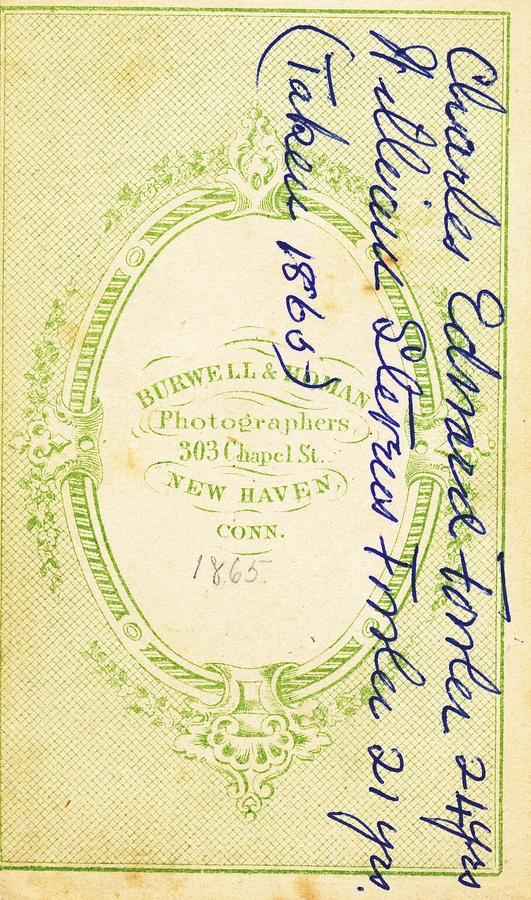 Charles Edmund Fowler 24 yrs
William Stevens Fowler 21 yrs.
(Taken 1865)
BURWELL & HOMAN
Photographers
303 Chapel St.
NEW HAVEN,
CONN.
1865